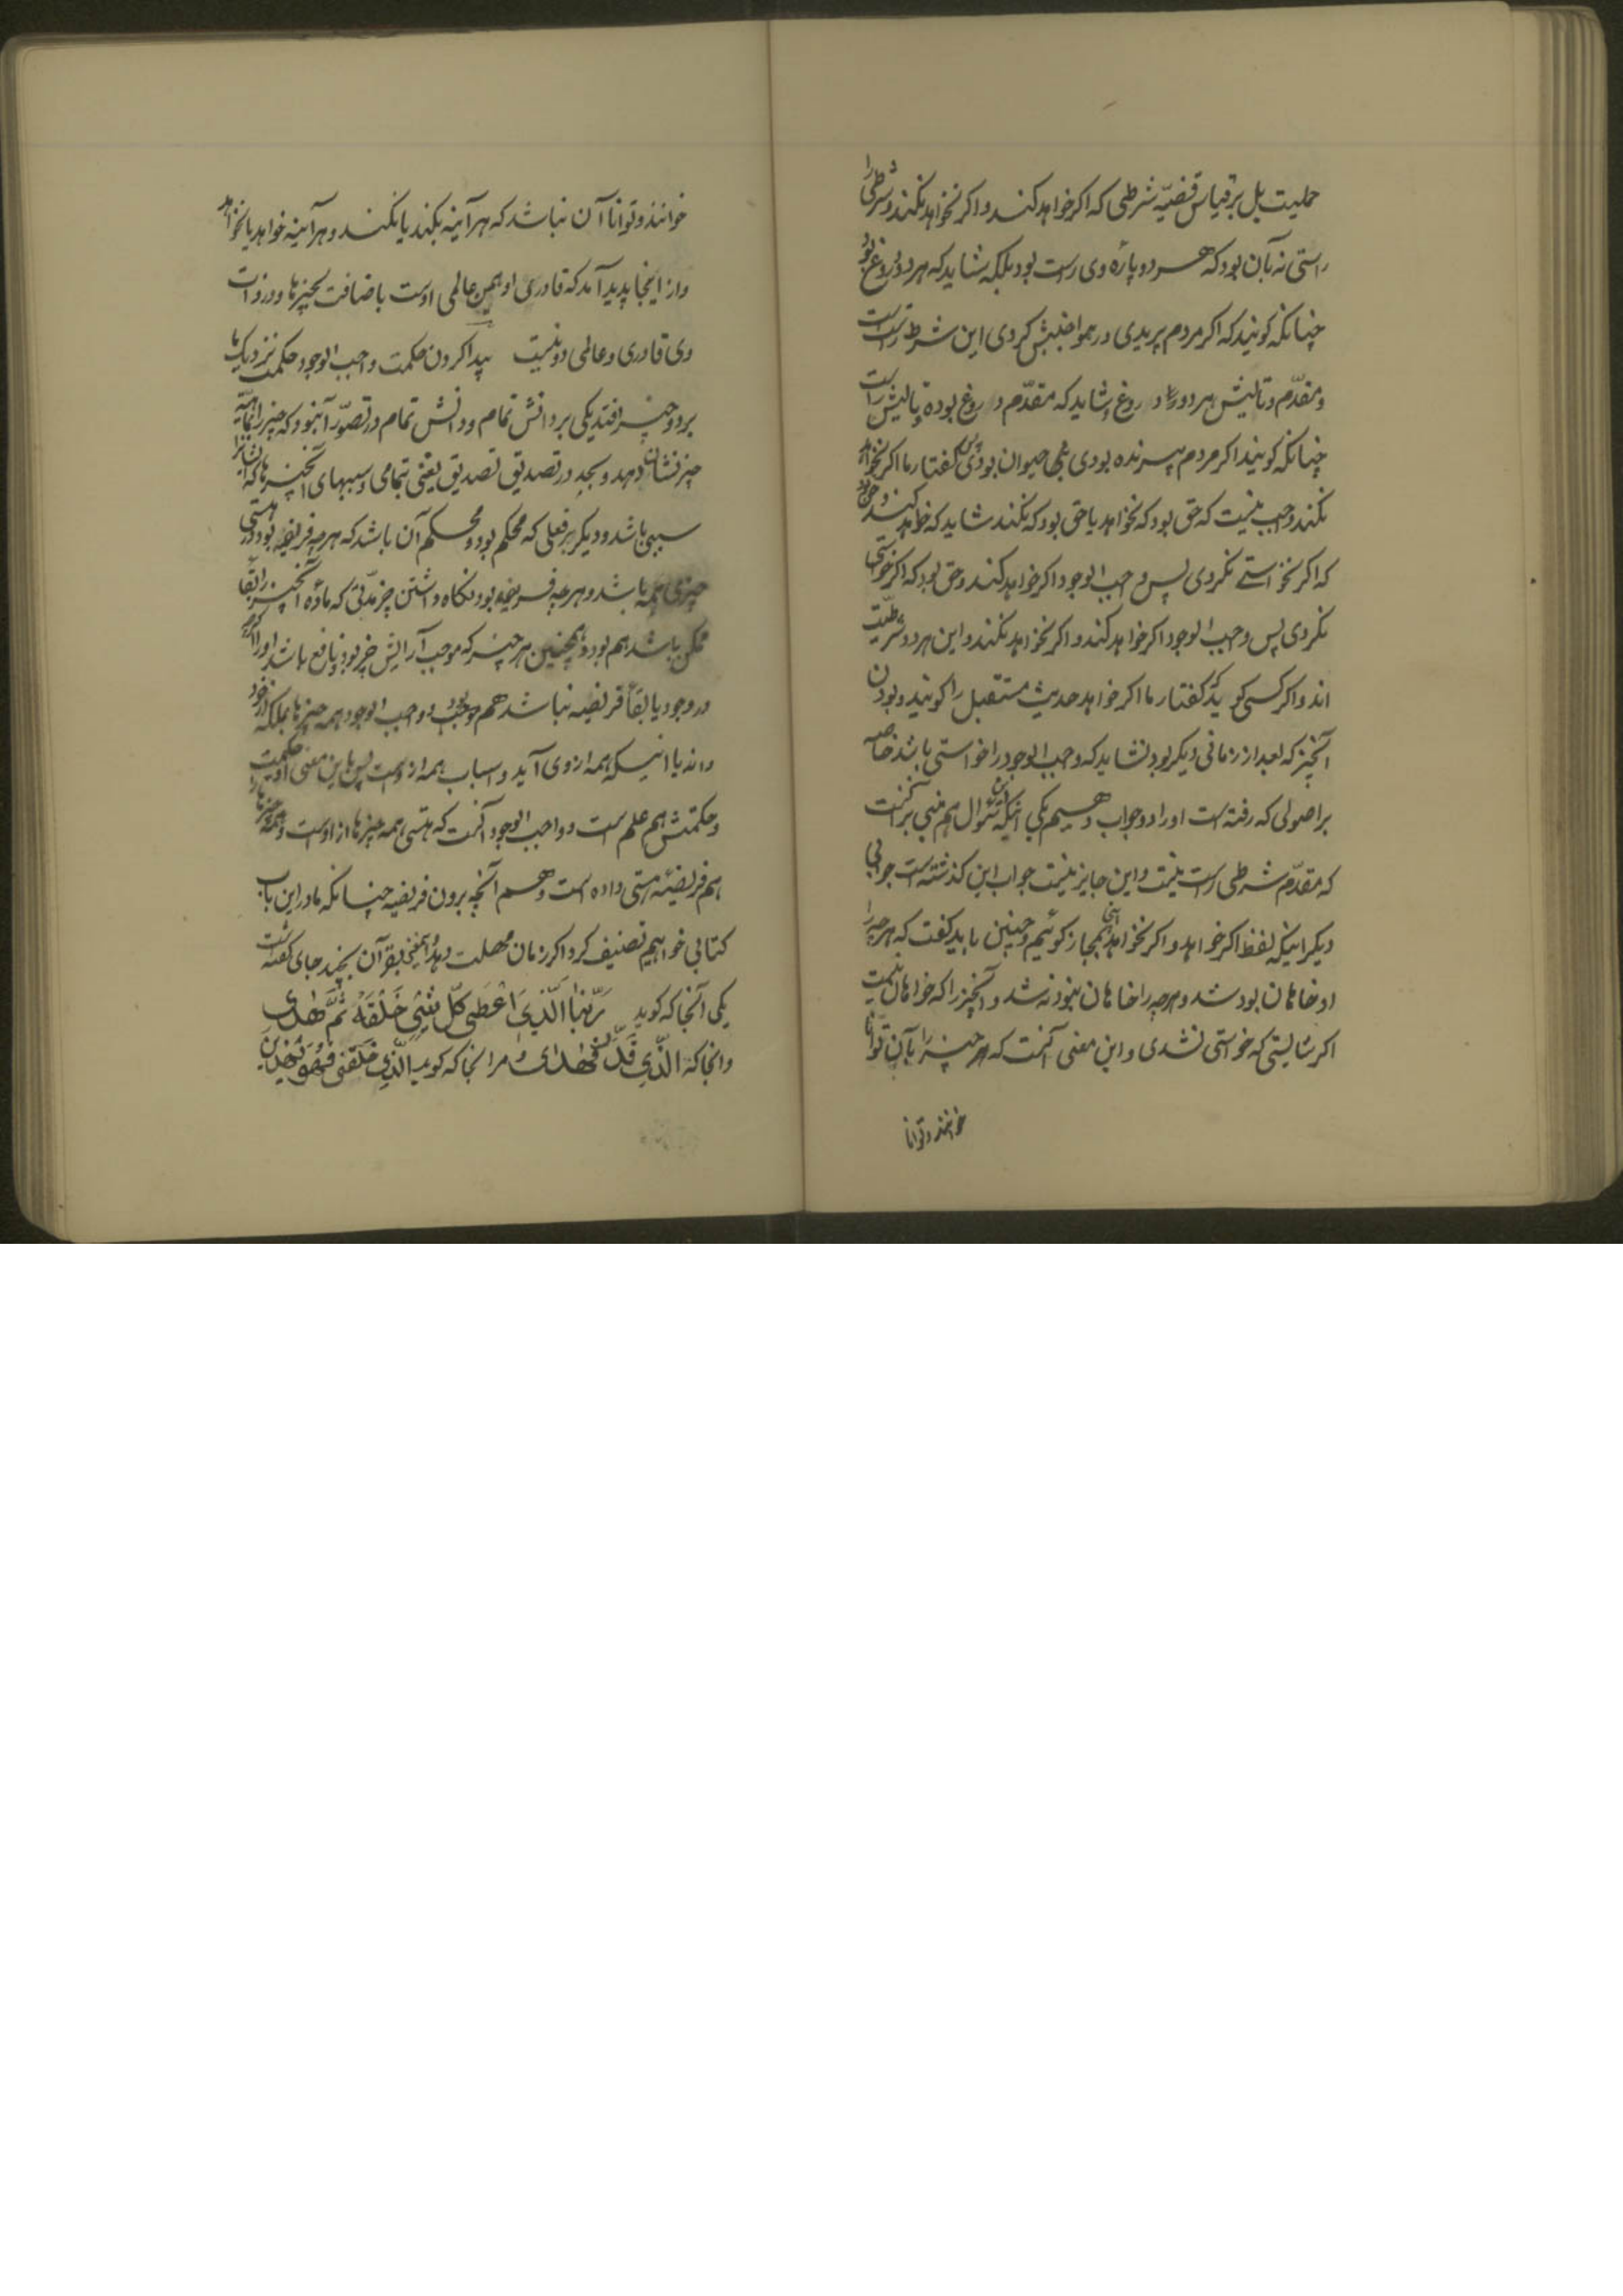 حملیت بل بر قیاس قضیّه شرطی که اکر خواهد کند و اکر نخواهد نکند و شرطی را
راستی نه بآن بود که هر دو پاره وی راست بود بلکه شاید که هر دو دروغ بود
چنانکه کویند که اکر مردم پریدی در هوا جنبش کردی این شرط راست است
و مقدّم و تالیش هر دو دروغ و شاید که مقدّم دروغ بود و تالیش راست
چنانکه کویند اکر مردم پرنده بودی حیوان بودی پس کفتار ما اکر نخواهد
نکند واجب نیست که حق بود که نخواهد یا حق بود که نکند شاید که خواهد و کند و حق بود
که اکر نخواستی نکردی پس واجب الوجود اکر خواهد کند و حق بود که اکر نخواستی
نکردی پس واجب الوجود اکر خواهد کند و اکر نخواهد نکند و این هر دو شرطیت
اند و اکر کسی کوید که کفتار ما اکر خواهد حدیث مستقبل را کویند و بودن
آنچیز که بعد از زمانی دیکر بود نشاید که واجب الوجود را خواستی باشد خاصه
بر اصولی که رفته است او را دو جواب دهیم یکی آنکه این سئوال هم مبنی بر آنست
که مقدّم شرطی راست نیست و این جایز نیست جواب این کذشته است جوابی
دیکر اینکه لفظ اکر خواهد و اکر نخواهد اینجا بمجاز کوئیم و چنین باید کفت که هر چه را
او خاهان بود شد و هر چه را خاهان نبود نه شد و آنچیز را که خواهان نیست
اکر شایستی که خواستی نشدی و این معنی آنست که هر چیز را بآن توانا
خوانند و توانا
خوانند و توانا آن نباشد که هر آینه بکند یا نکند و هر آینه خواهد یا نخواهد
و از اینجا پدید آمد که قادری او همین عالمی اوست باضافت بچیزها و در ذات
وی قادری و عالمی دو نیست پیدا کردن حکمت واجب الوجود حکمت نزدیک ما
بر دو چیز افتد یکی بر دانش تمام و دانش تمام در تصوّر آن بود که چیز را بماهیّه
چیز نشان دهد و بحد در تصدیق تصدیق یقینی بتمامی سببهای آنچیزها که ایشانرا
سببی باشد و دیکر بر فعلی که محکم بود و محکم آن باشد که هر چه فریضه بود در هستی
چیزی همه باشد و هر چه فریضه بود نکاه داشتن چیز مدّتی که مادّه آنچیز را بقا
ممکن باشد هم بود و همچنین هر چیز که موجب آرایش چیز بود و نافع باشد او را اکرچه
در وجود یا بقا فریضه نباشد هم موجب بود و واجب الوجود همه چیزها بلکه از خود
داند با اینکه همه از وی آید و اسباب همه از اوست پس باین معنی او حکیمست
و حکمتش هم علم است و واجب الوجود آنست که هستی همه چیزها از اوست و همه چیزها را
هم فریضئه هستی داده است و هم آنچه برون فریضه چنانکه ما در این باب
کتابی خواهیم تصنیف کرد اکر زمان مهلت دهد و اینمعنی بقرآن بچند جای کفته شده است
یکی آنجا که کوید رَبُّنَا الَّذِی اَعْطَی کُلَّ شَیْیءٍ خَلْقَهُ ثُمَّ هَدَی
و انجا که الَّذِی قَدَّرَ فَهَدَی و مر انجا که کوید الَّذِی خَلَقَنِی فَهُوَ یَهْدِیْنِ